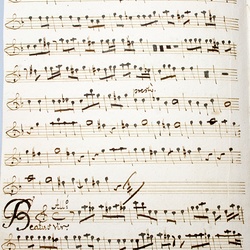 presto
Beatus vir